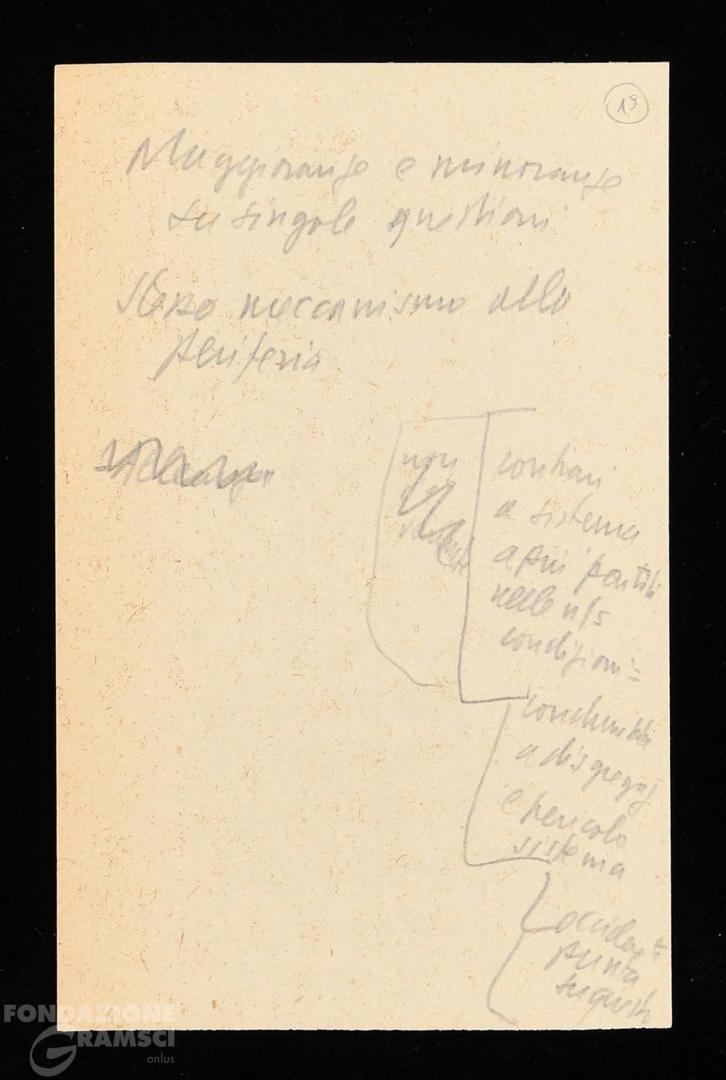 19
Maggioranze e minoranze
su singole questioni
stesso meccanismo alla
periferia
non
contrari
a sistema
a più partiti
nelle ns
condizioni =
condurrebbe
a disgregaz
e pericolo
sistema
occident
punta
su questo
FONDAZIONE
GRAMSCI
onlus